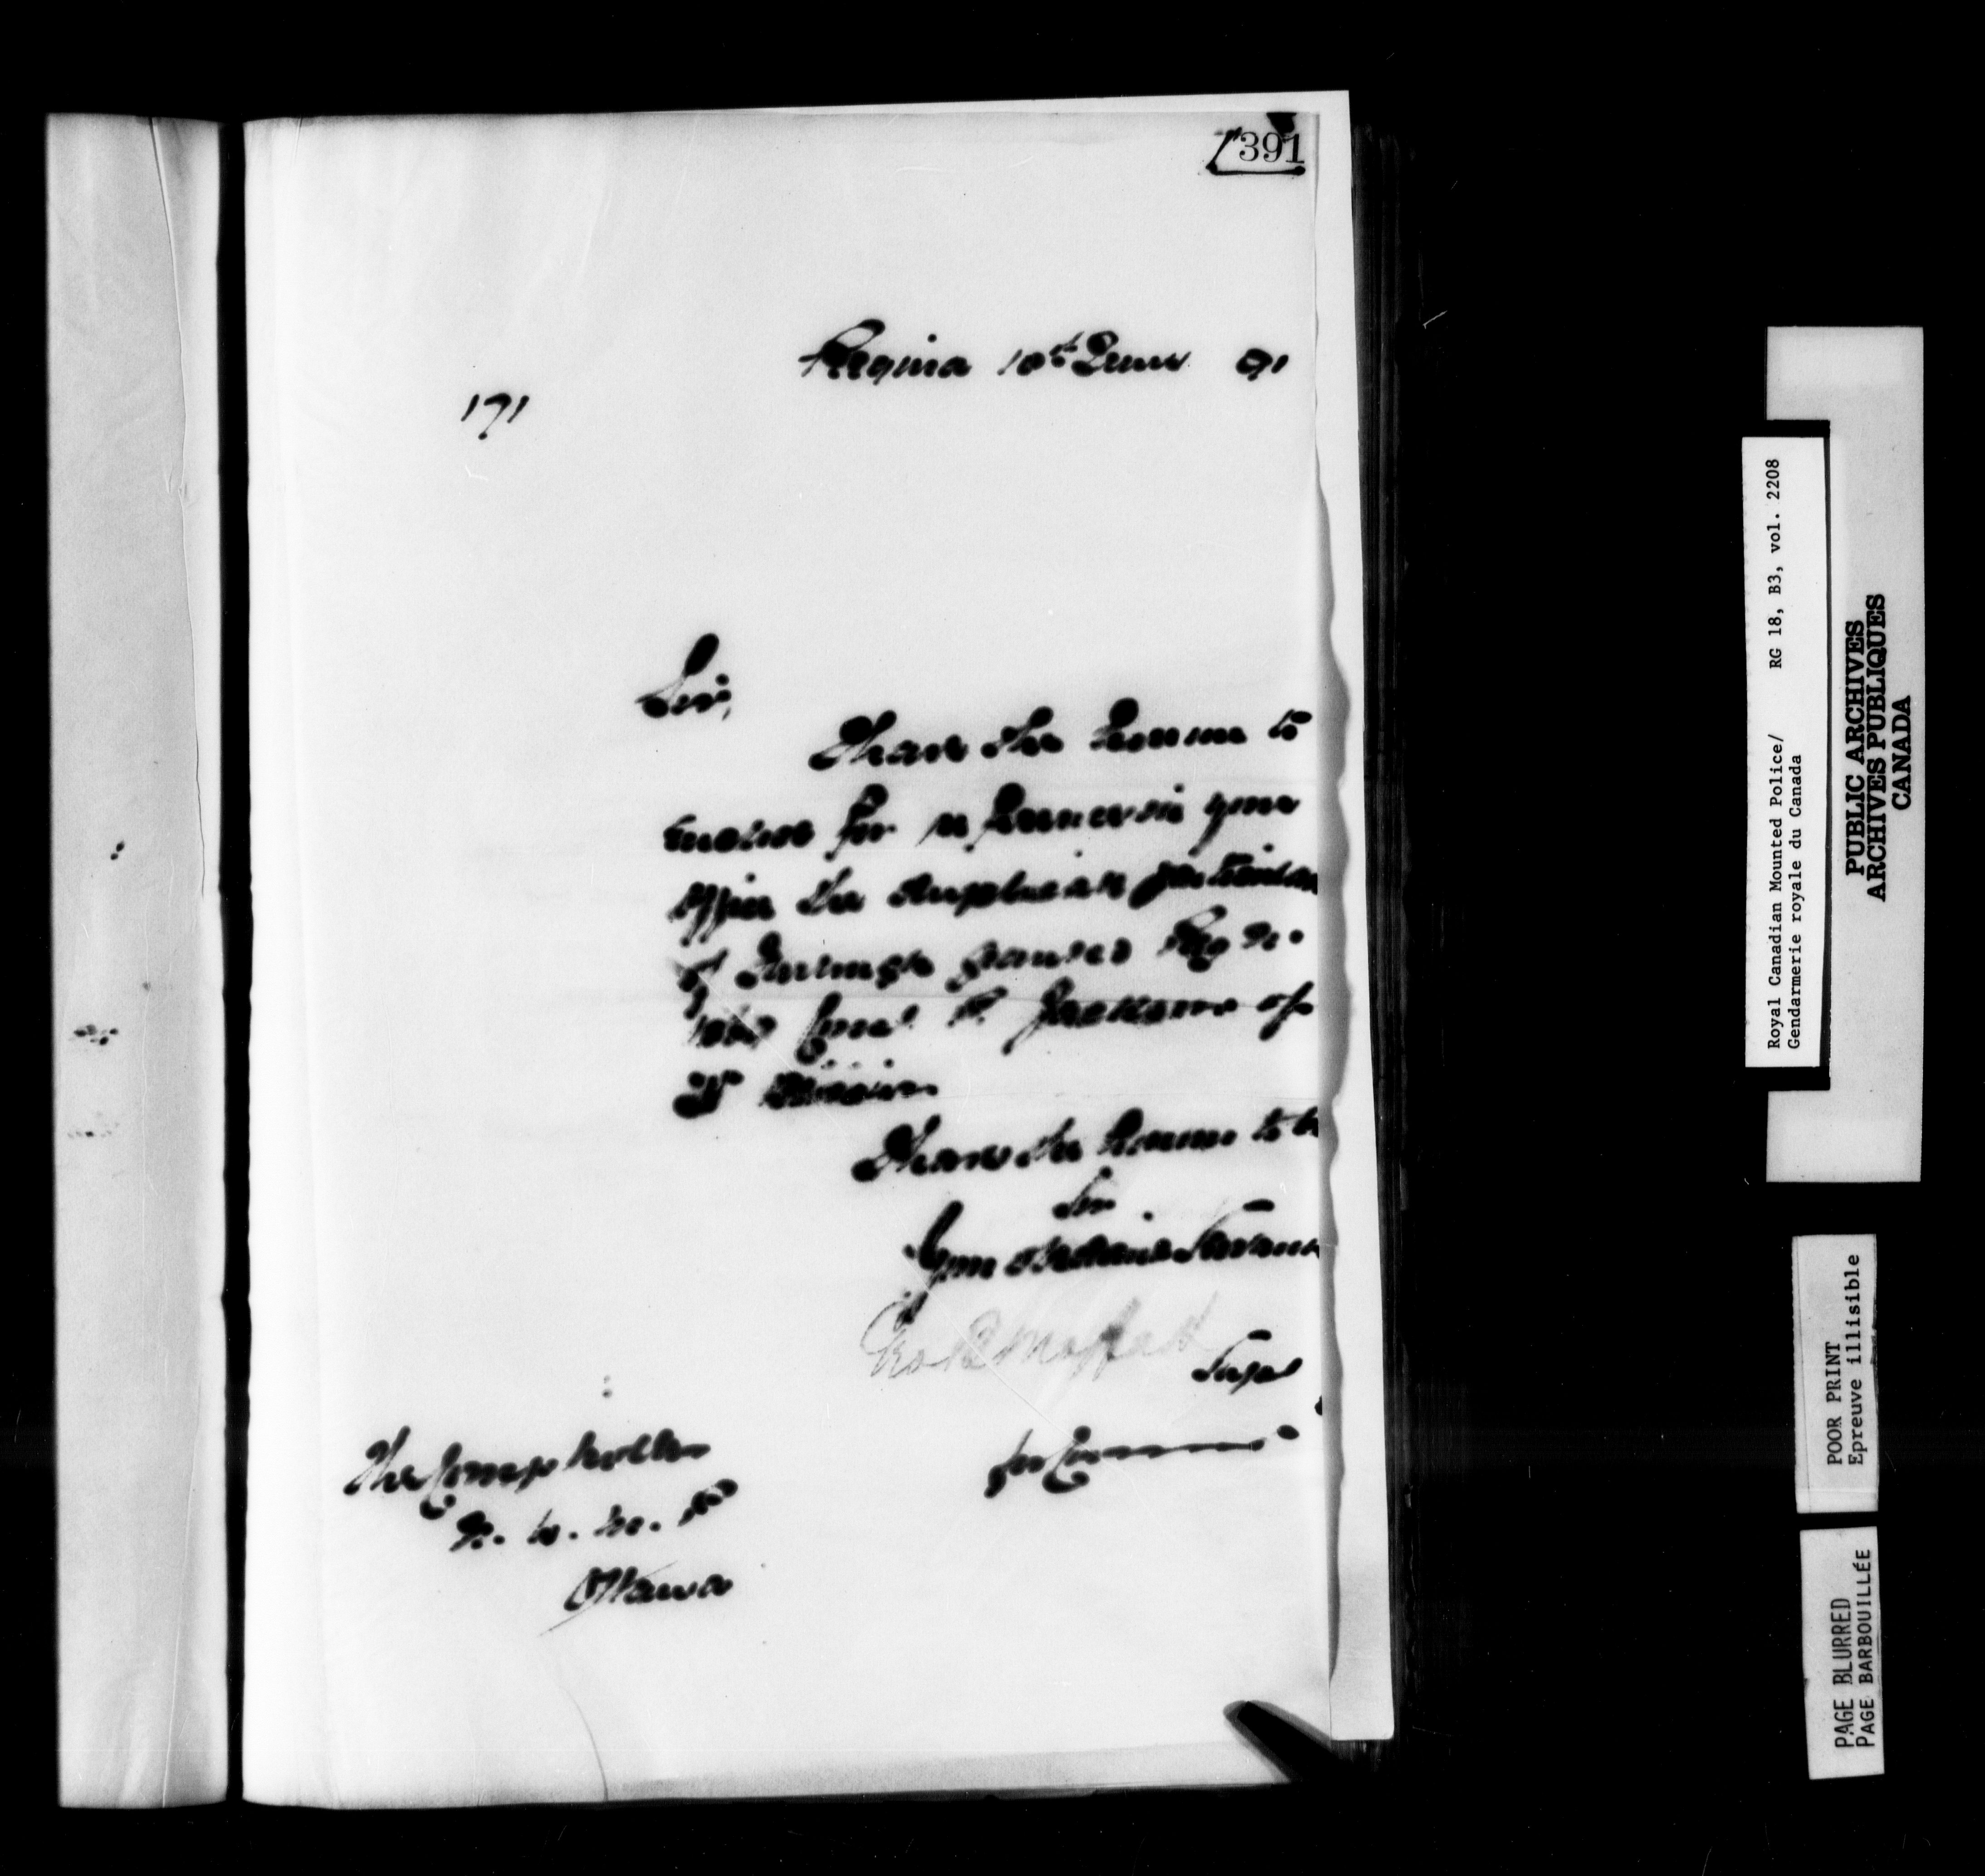 391
Regina 10th June 91
171
Sir,
I have the honour to
enclose for reference in your
Office the duplicate
of furlough granted Reg No.
Corpl. Jackson of
Division
I have the honour to be
Sir
Your Obedient Servant
Geo B Moffatt
Supt
for Comm
The Comptroller
N. W. M. P
Ottawa
Royal Canadian Mounted Police/ RG 18, B3, vol. 2208
Gendarmerie royale du Canada
PUBLIC ARCHIVES
ARCHIVES PUBLIQUES
CANADA
POOR PRINT
Epreuve illisible
PAGE BLURRED
PAGE BARBOUILLÉE